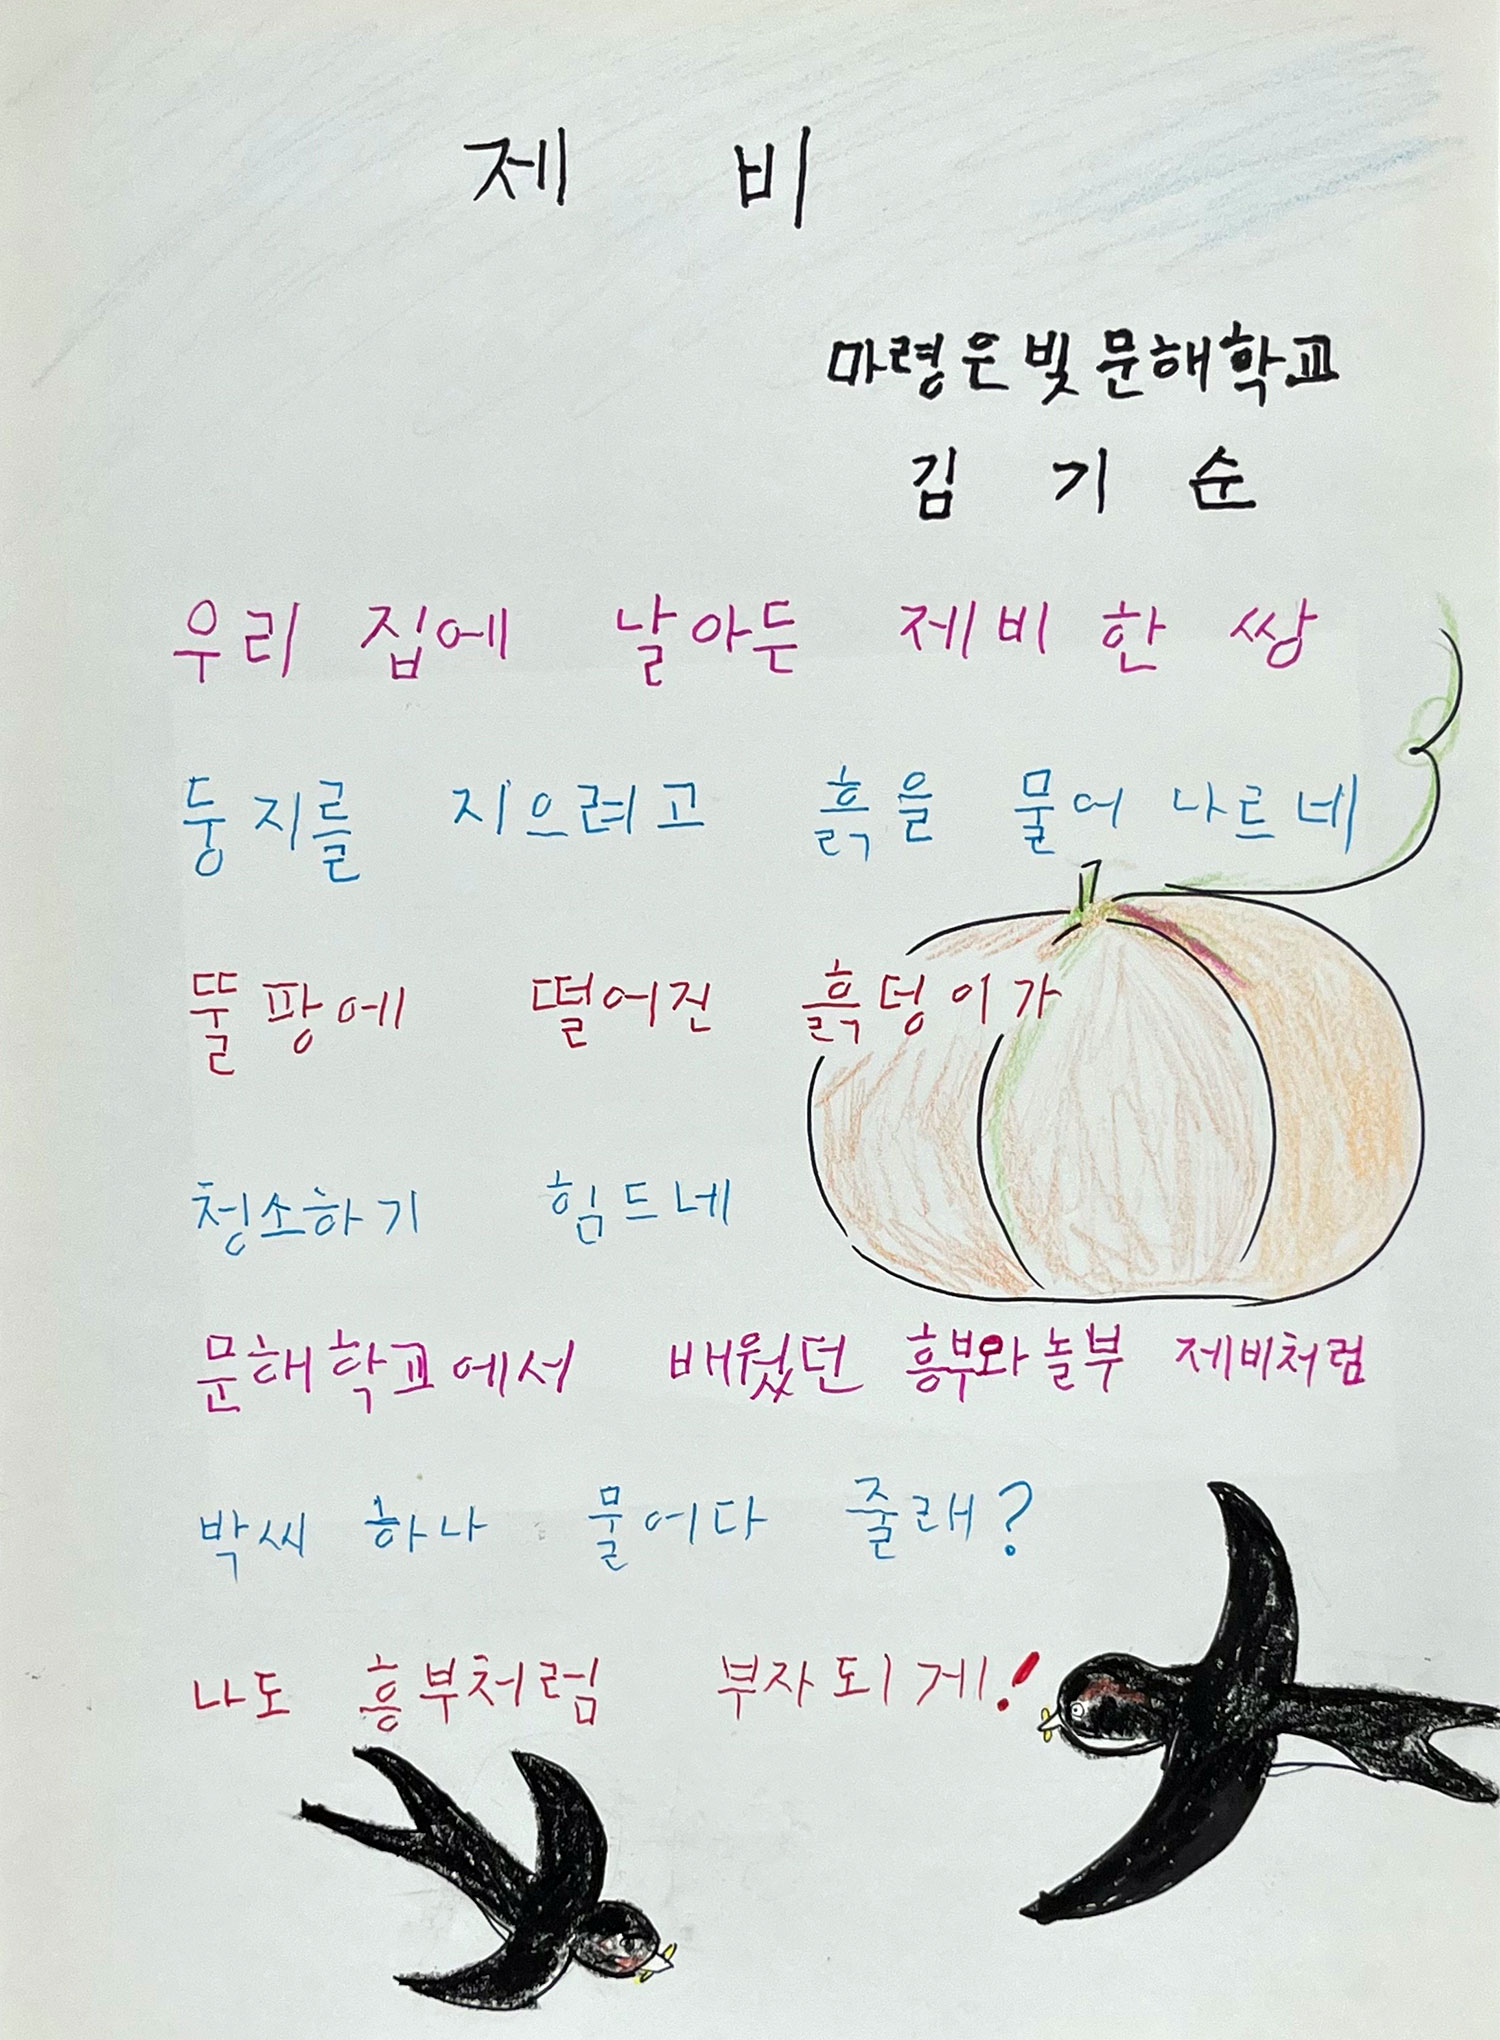 제 비
마령은빛문해학교
김 기 순
우리 집에 날아든 제비 한 쌍
둥지를 지으려고 흙을 물어 나르네
뚤팡에 떨어진 흙덩이가
청소하기 힘드네
문해학교에서 배웠던 흥부와놀부 제비처럼
박씨 하나 물어다 줄래?
나도 흥부처럼 부자되게!